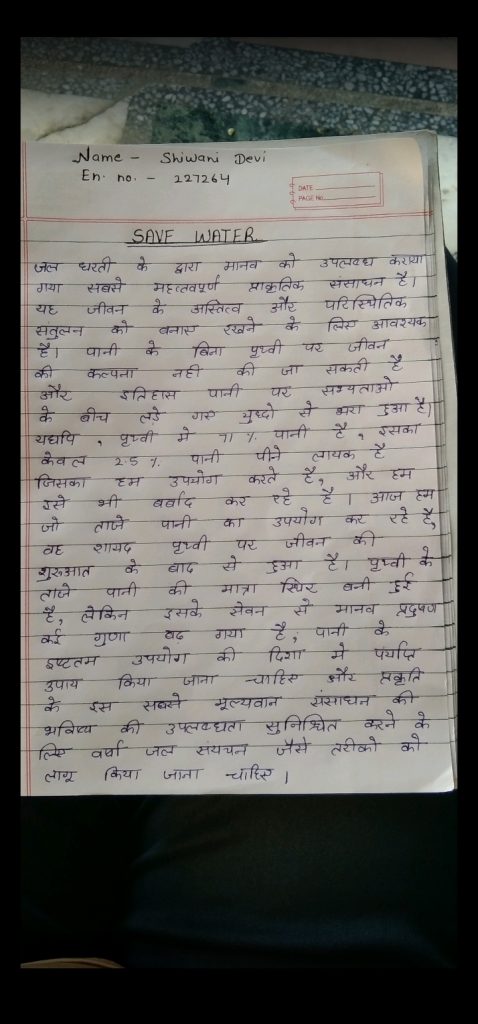 Name - Shiwani Devi
En. no. - 227264
DATE
PAGE No.
SAVE WATER
जल धरती के द्वारा मानव को उपलब्ध कराया
गया सबसे महत्वपूर्ण प्राकृतिक संसाधन है।
यह जीवन के अस्तित्व और परिस्थितिक
संतुलन को बनाए रखने के लिए आवश्यक
है। पानी के बिना पृथ्वी पर जीवन
की कल्पना नही की जा सकती है
और इतिहास पानी पर सभ्यताओ
के बीच लड़े गए युध्दो से भरा हुआ है।
यद्यपि, पृथ्वी मे 71 % पानी है, इसका
केवल 2.5 % पानी पीने लायक है
जिसका हम उपयोग करते है, और हम
इसे भी बर्बाद कर रहे है। आज हम
जो ताजे पानी का उपयोग कर रहे है,
वह शायद पृथ्वी पर जीवन की
शुरुआत के बाद से हुआ है। पृथ्वी के
ताजे पानी की मात्रा स्थिर बनी हुई
है, लेकिन इसके सेवन से मानव प्रदुषण
कई गुणा बढ गया है, पानी के
इष्टतम उपयोग की दिशा मे पर्याप्त
उपाय किया जाना चाहिए और प्रकृति
के इस सबसे मूल्यवान संसाधन की
भविष्य की उपलब्धता सुनिश्चित करने के
लिए वर्षा जल संयचन जैसे तरीको को
लागू किया जाना चाहिए।